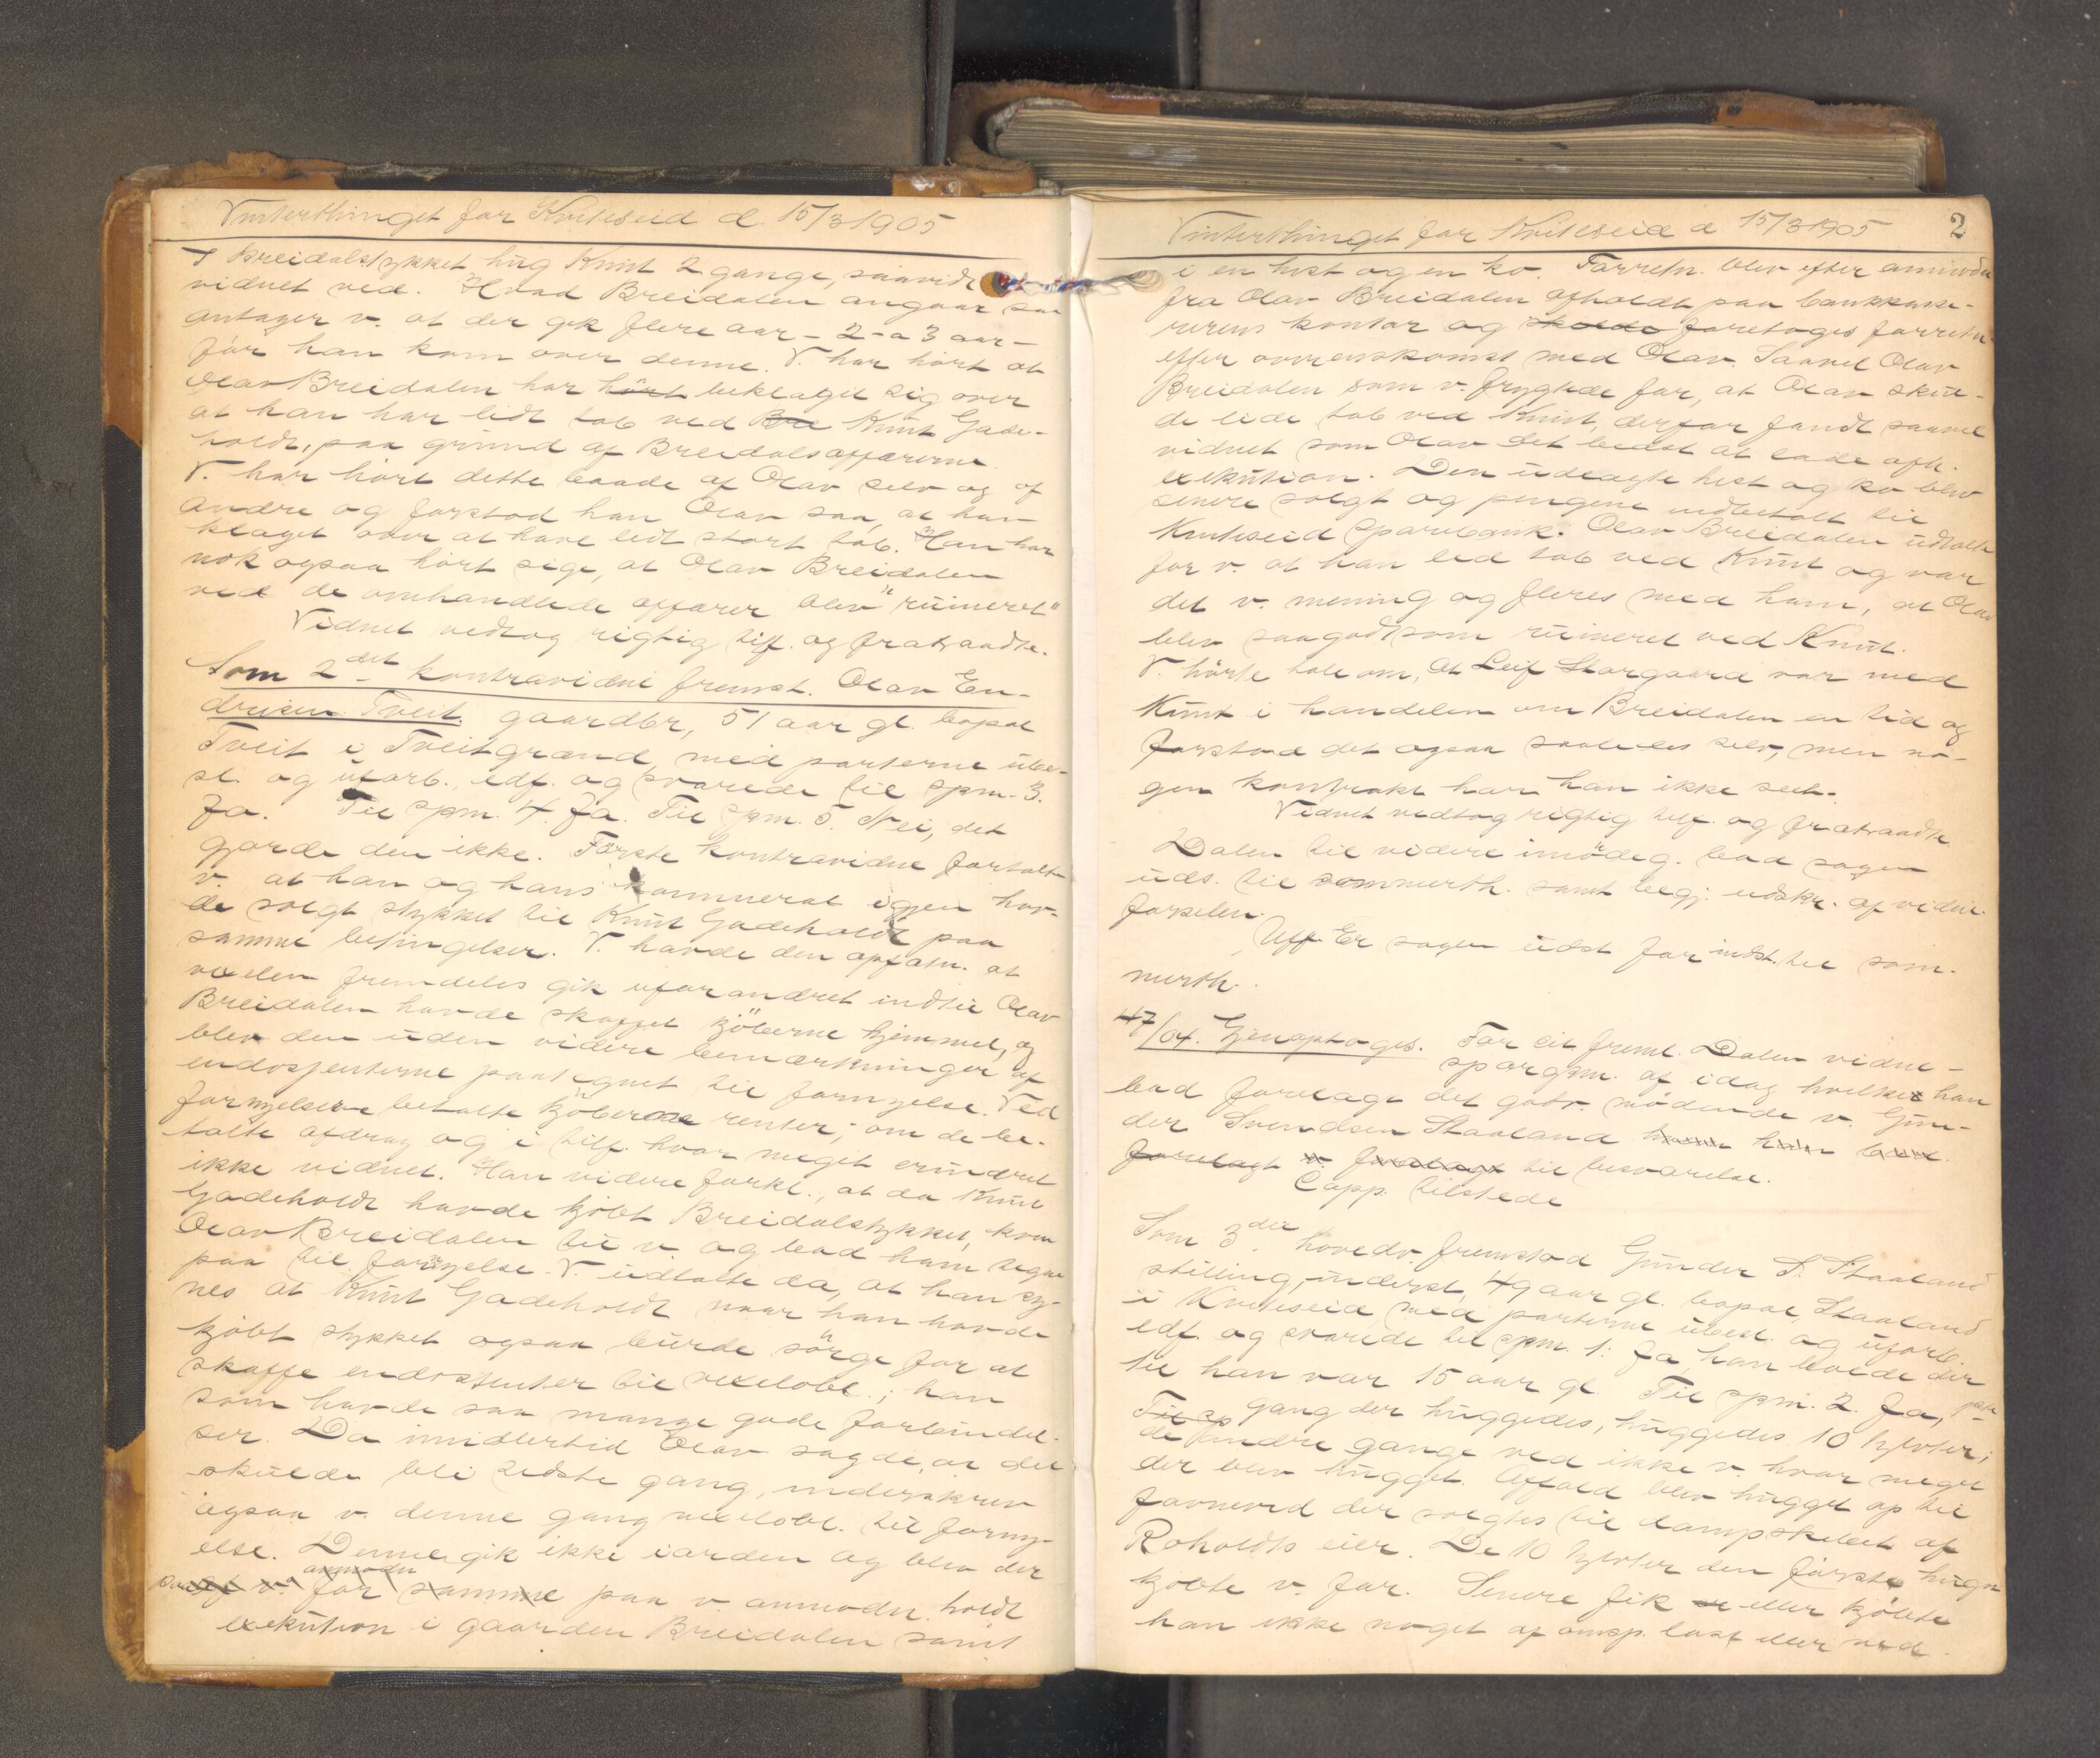 Vinterthinget for Kviteseid d. 15/3 1905
I Breidalstykket hug Knut 2 gange, saavidt
vidnet ved. Hvad Breidalen angaar saa
antager v. at der gik flere aar - 2 a 3 aar -
før han kom over denne. V. har hørt at
Olav Breidalen har hørt beklaget sig over
at han har lidt tab ved Bre Knut Gade-
holdt, paa grund af Breidalsaffærerne.
V. har hørt dette baade af Olav selv og af
andre og forstod han Olav saa, at han
klaget over at have lidt stort tab. Han har
nok ogsaa hørt sige, at Olav Breidalen
ved de omhandlede affærer blev "ruineret"
Vidnet vedtog rigtig tilf. og fratraadte.
Som 2det kontravidne fremst. Olav En-
dresen Tveit, gaardbr, 51 aar gl. bopæl
Tveit i Tveitgrænd, med parterne ube-
sl. og uforb., edf. og svarede til spm. 3.
Ja. Til spm. 4. Ja. Til spm. 5. Nei, det
gjorde den ikke. Første kontravidne fortalte
v. at han og hans kammerat igjen hav-
de solgt stykket til Knut Gadeholdt paa
samme betingelser. V. havde den opfatn. at
vexelen fremdeles gik uforandret indtil Olav
Breidalen havde skaffet kjøberne hjemmel, og
blev den uden videre bemærkninger af
endossenterne paategnet til fornyelse. Ved
fornyelserne betalte kjøberne renter; om de be-
talte afdrag og i tilf. hvor meget erindret
ikke vidnet. Han videre forkl., at da Knut
Gadeholdt havde kjøbt Breidalstykket, kom
Olav Breidalen til v. og bad ham tegne
paa til fornyelse. V. udtalte da, at han sy-
nes at Knut Gadeholdt naar han havde
kjøbt stykket ogsaa burde sørge for at
skaffe endossenter til vexelobl.; han
som havde saa mange gode forbindel-
ser. Da imidlertid Olav sagde, at det
skulde bli sidste gang, underskrev
ogsaa v. denne gang vexelobl. til forny-
else. Denne gik ikke i orden og blev der
anmodn
paa af v. for samme paa v. anmodn. holdt
exekution i gaarden Breidalen samt
Vinterthinget for Kviteseid d 15/3 1905
2
i en hest og en ko. Forretn. blev efter anmodn
fra Olav Breidalen afholdt paa bankkasse-
rerens kontor og skulde foretoges forretn
efter overenskomst med Olav. Saavel Olav
Breidalen som v. frygtede for, at Olav skul-
de lide tab ved Knut, derfor fandt saavel
vidnet som Olav det bedst at lade afh.
exekution. Den udlagte hest og ko blev
senere solgt og pengene indbetalt til
Kviteseid Sparebank. Olav Breidalen udtalte
for v. at han led tab ved Knut og var
det v. mening og fleres med ham, at Olav
blev saagodtsom ruineret ved Knut.
V. hørte tale om, at Leif Storgaard var med
Knut i handelen om Breidalen en tid og
forstod det ogsaa saaledes selv, men no-
gen kontrakt har han ikke seet.
Vidnet vedtog rigtig tilf. og fratraadte.
Dalen til videre imødeg. bad sagen
uds. til sommerth. samt beg: udskr. af vidne-
førselen.
Uff. Er sagen udst for indst. til som-
merth.
47/04. Gjenoptoges. For eit freml. Dalen vidne-
spørgsm. af idag hvilket han
bad forelagt det godv. mødende v. Gun-
der Svendsen Staaland
forelagt v. forelagt til besvarelse.
Capp. tilstede
Som 3die hovedv. fremstod Gunder S. Staaland
stilling, inderst, 49 aar gl. bopæl, Staaland
i Kviteseid med parterne ubesl. og uforb.
edf. og svarede til spm. 1: Ja, han boede der
til han var 15 aar gl. Til spm. 2. Ja, 1ste
Til sp gang der huggedes, huggedes 10 tylvter;
de andre gange ved ikke v. hvor meget
der blev hugget. Affald blev hugget op til
favneved der solgtes til dampskibet af
Roholdts eier. De 10 tylvter den første hugn
kjøbte v. for. Senere fik eller kjøbte
han ikke noget af omsp. last eller ved.